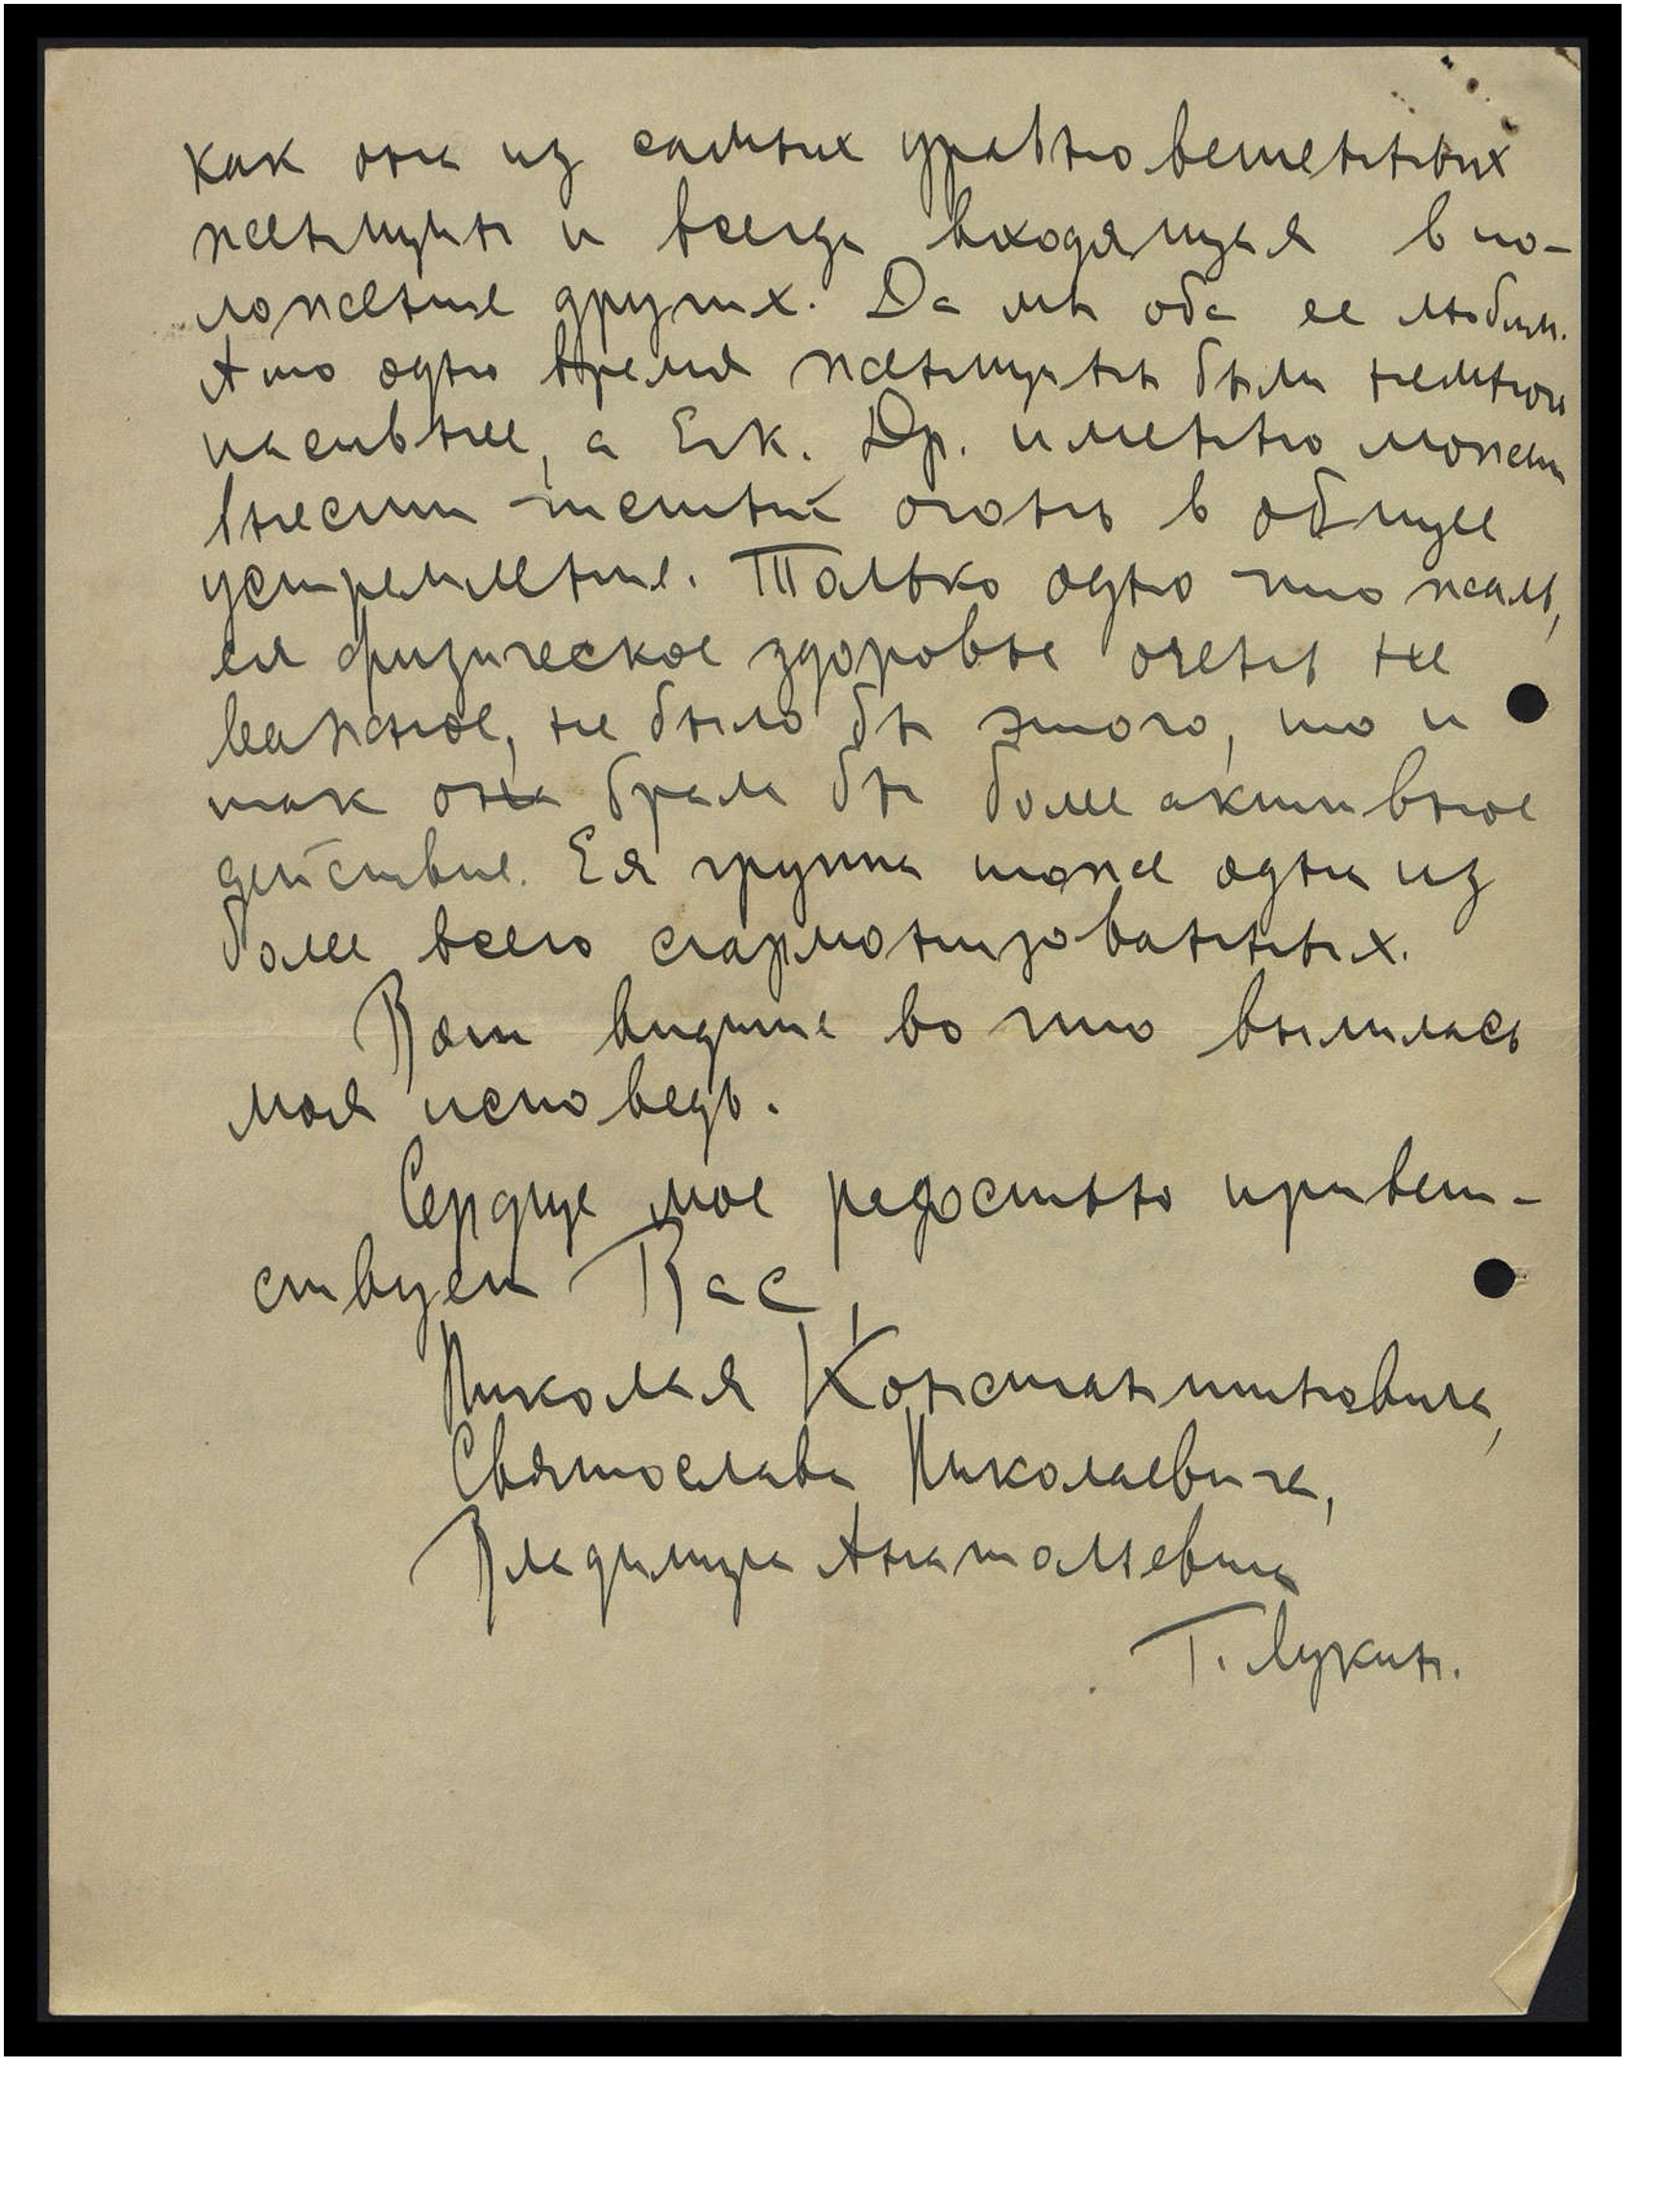 как она из самых уравновешенных
женщин и всегда входящая в по-
ложение других. Да мы оба ее любим.
А то одно время женщины были немного
пасивнее, а Ек. Др. именно может
внести истый огонь в общее
устремление. Только одно что жаль,
ея физическое здоровье очень не
важное, не было бы этого, то и
так она брала бы более активное
действие. Ея группа тоже одна из
более всего сгармонизованных.
Вот видите во что вылилась
моя исповедь.
Сердце мое радостью привет-
ствует Вас,
Николая Константиновича,
Святослава Николаевича,
Владимира Анатольевича
Г. Лукин.